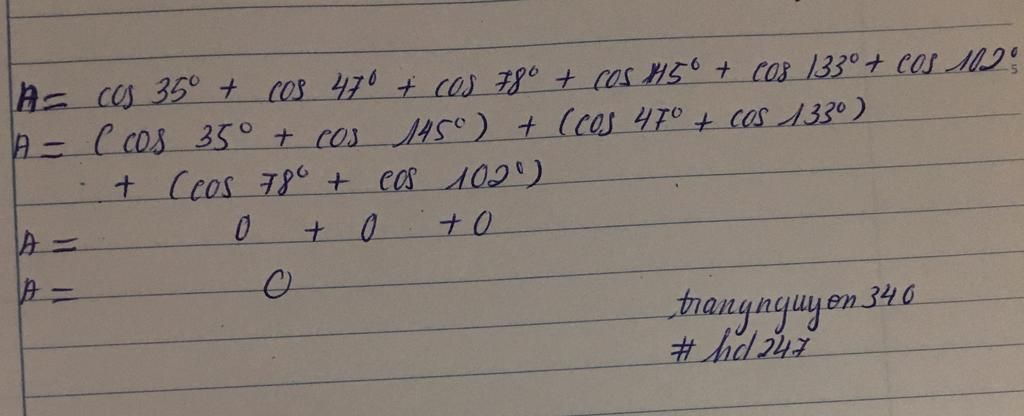 A = cos 35° + cos 47° + cos 78° + cos 145° + cos 133° + cos 102°
A = (cos 35° + cos 145°) + (cos 47° + cos 133°)
+ (cos 78° + cos 102°)
A = 0 + 0 + 0
A = 0
trangnguyen340
# hd247